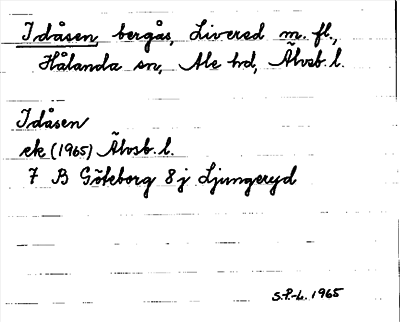 Idåsen, bergås, Livered m. fl.,
Hålanda sn, Ale hd, Älvsb. l.
Idåsen
ek (1965) Älvsb. l.
7 B Göteborg 8 j Ljungeryd
S.P.-L. 1965